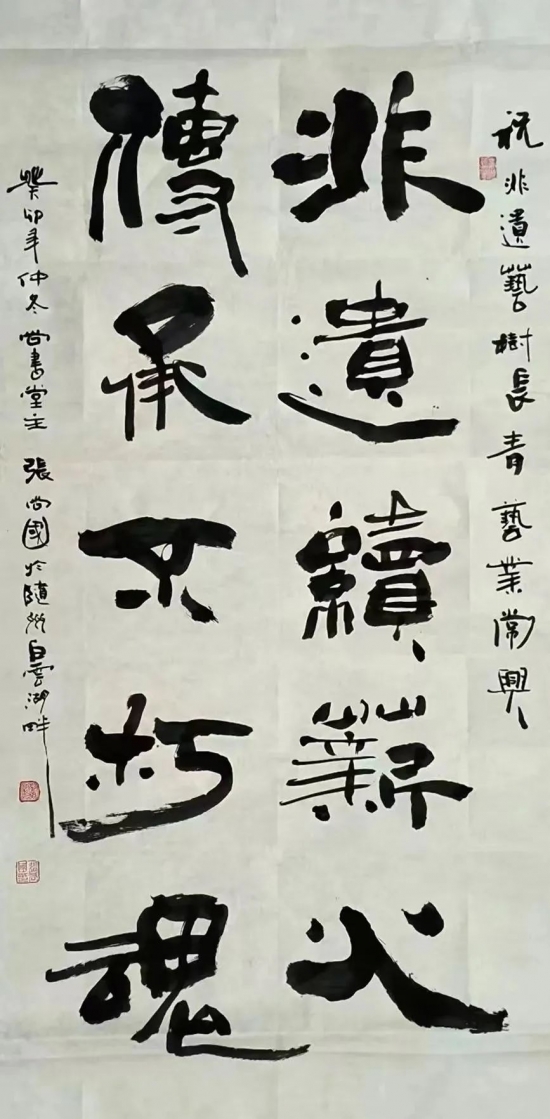 祝非遺藝樹長青藝業常興
非遺續薪火
傳承不朽魂
癸卯年仲冬尚書堂主張尚國於隨州白雲湖畔